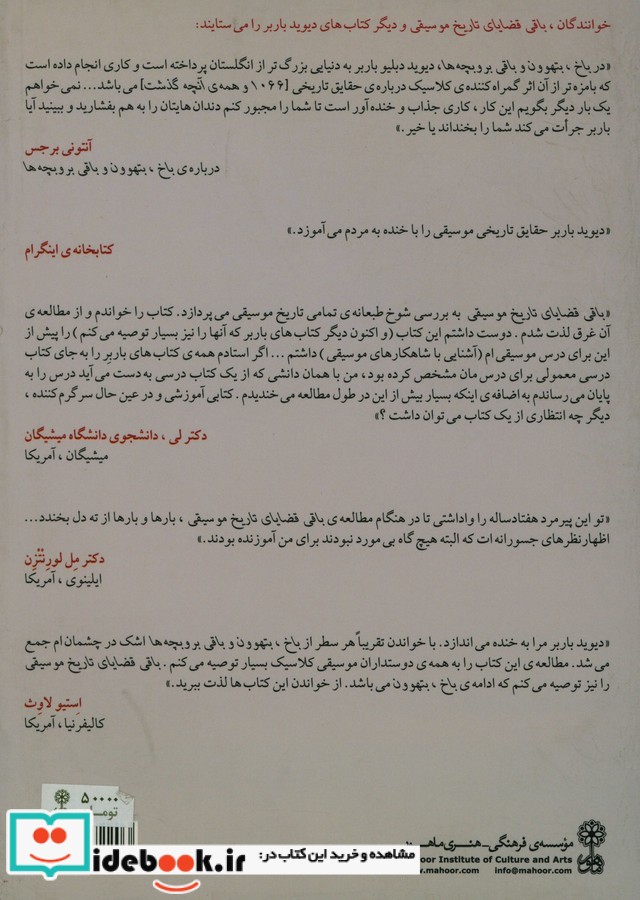 خوانندگان، باقی قضایای تاریخ موسیقی و دیگر کتاب های دیوید باربر را می‌ستایند:
«در باخ، بتهوون و باقی بروبچه‌ها، دیوید دبلیو باربر به دنیایی بزرگ تر از انگلستان پرداخته است و کاری انجام داده است
که بامزه تر از آن اثر گمراه کننده‌ی کلاسیک درباره‌ی حقایق تاریخی [۱۰۶۶ و همه‌ی آنچه گذشت] می‌باشد... نمی خواهم
یک بار دیگر بگویم این کار، کاری جذاب و خنده آور است تا شما را مجبور کنم دندان هایتان را به هم بفشارید و ببینید آیا
باربر جرأت می کند شما را بخنداند یا خیر.»
آنتونی برجس
درباره‌ی باخ، بتهوون و باقی بروبچه‌ها
«دیوید باربر حقایق تاریخی موسیقی را با خنده به مردم می آموزد.»
کتابخانه‌ی اینگرام
«باقی قضایای تاریخ موسیقی به بررسی شوخ طبعانه‌ی تمامی تاریخ موسیقی می پردازد. کتاب را خواندم و از مطالعه‌ی
آن غرق لذت شدم. دوست داشتم این کتاب (و اکنون دیگر کتاب های باربر که آنها را نیز بسیار توصیه می کنم) را پیش از
این برای درس موسیقی ام (آشنایی با شاهکارهای موسیقی) داشتم ... اگر استادم همه‌ی کتاب های باربر را به جای کتاب
درسی معمولی برای درس مان مشخص کرده بود، من با همان دانشی که از یک کتاب درسی به دست می آید درس را به
پایان می رساندم به اضافه‌ی اینکه بسیار بیش از این در طول مطالعه می خندیدم. کتابی آموزشی و در عین حال سرگرم کننده،
دیگر چه انتظاری از یک کتاب می توان داشت؟»
دکتر لی، دانشجوی دانشگاه میشیگان
میشیگان، آمریکا
«تو این پیرمرد هفتادساله را واداشتی تا در هنگام مطالعه‌ی باقی قضایای تاریخ موسیقی، بارها و بارها از ته دل بخندد...
اظهارنظرهای جسورانه ات که البته هیچ گاه بی مورد نبودند برای من آموزنده بودند.»
دکتر مِل لورِنْتْزِن
ایلینوی، آمریکا
«دیوید باربر مرا به خنده می اندازد. با خواندن تقریباً هر سطر از باخ، بتهوون و باقی بروبچه‌ها اشک در چشمان ام جمع
می شد. مطالعه‌ی این کتاب را به همه‌ی دوستداران موسیقی کلاسیک بسیار توصیه می کنم. باقی قضایای تاریخ موسیقی
را نیز توصیه می کنم که ادامه‌ی باخ، بتهوون می باشد. از خواندن این کتاب ها لذت ببرید.»
اِستیو لاوِث
کالیفرنیا، آمریکا
۵۰۰۰۰
مؤسسه‌ی فرهنگی_هنری ماهور
oor Institute of Culture and Arts
www.mahoor.com info@mahoor.com
مشاهده و خرید این کتاب در:
idebook.ir